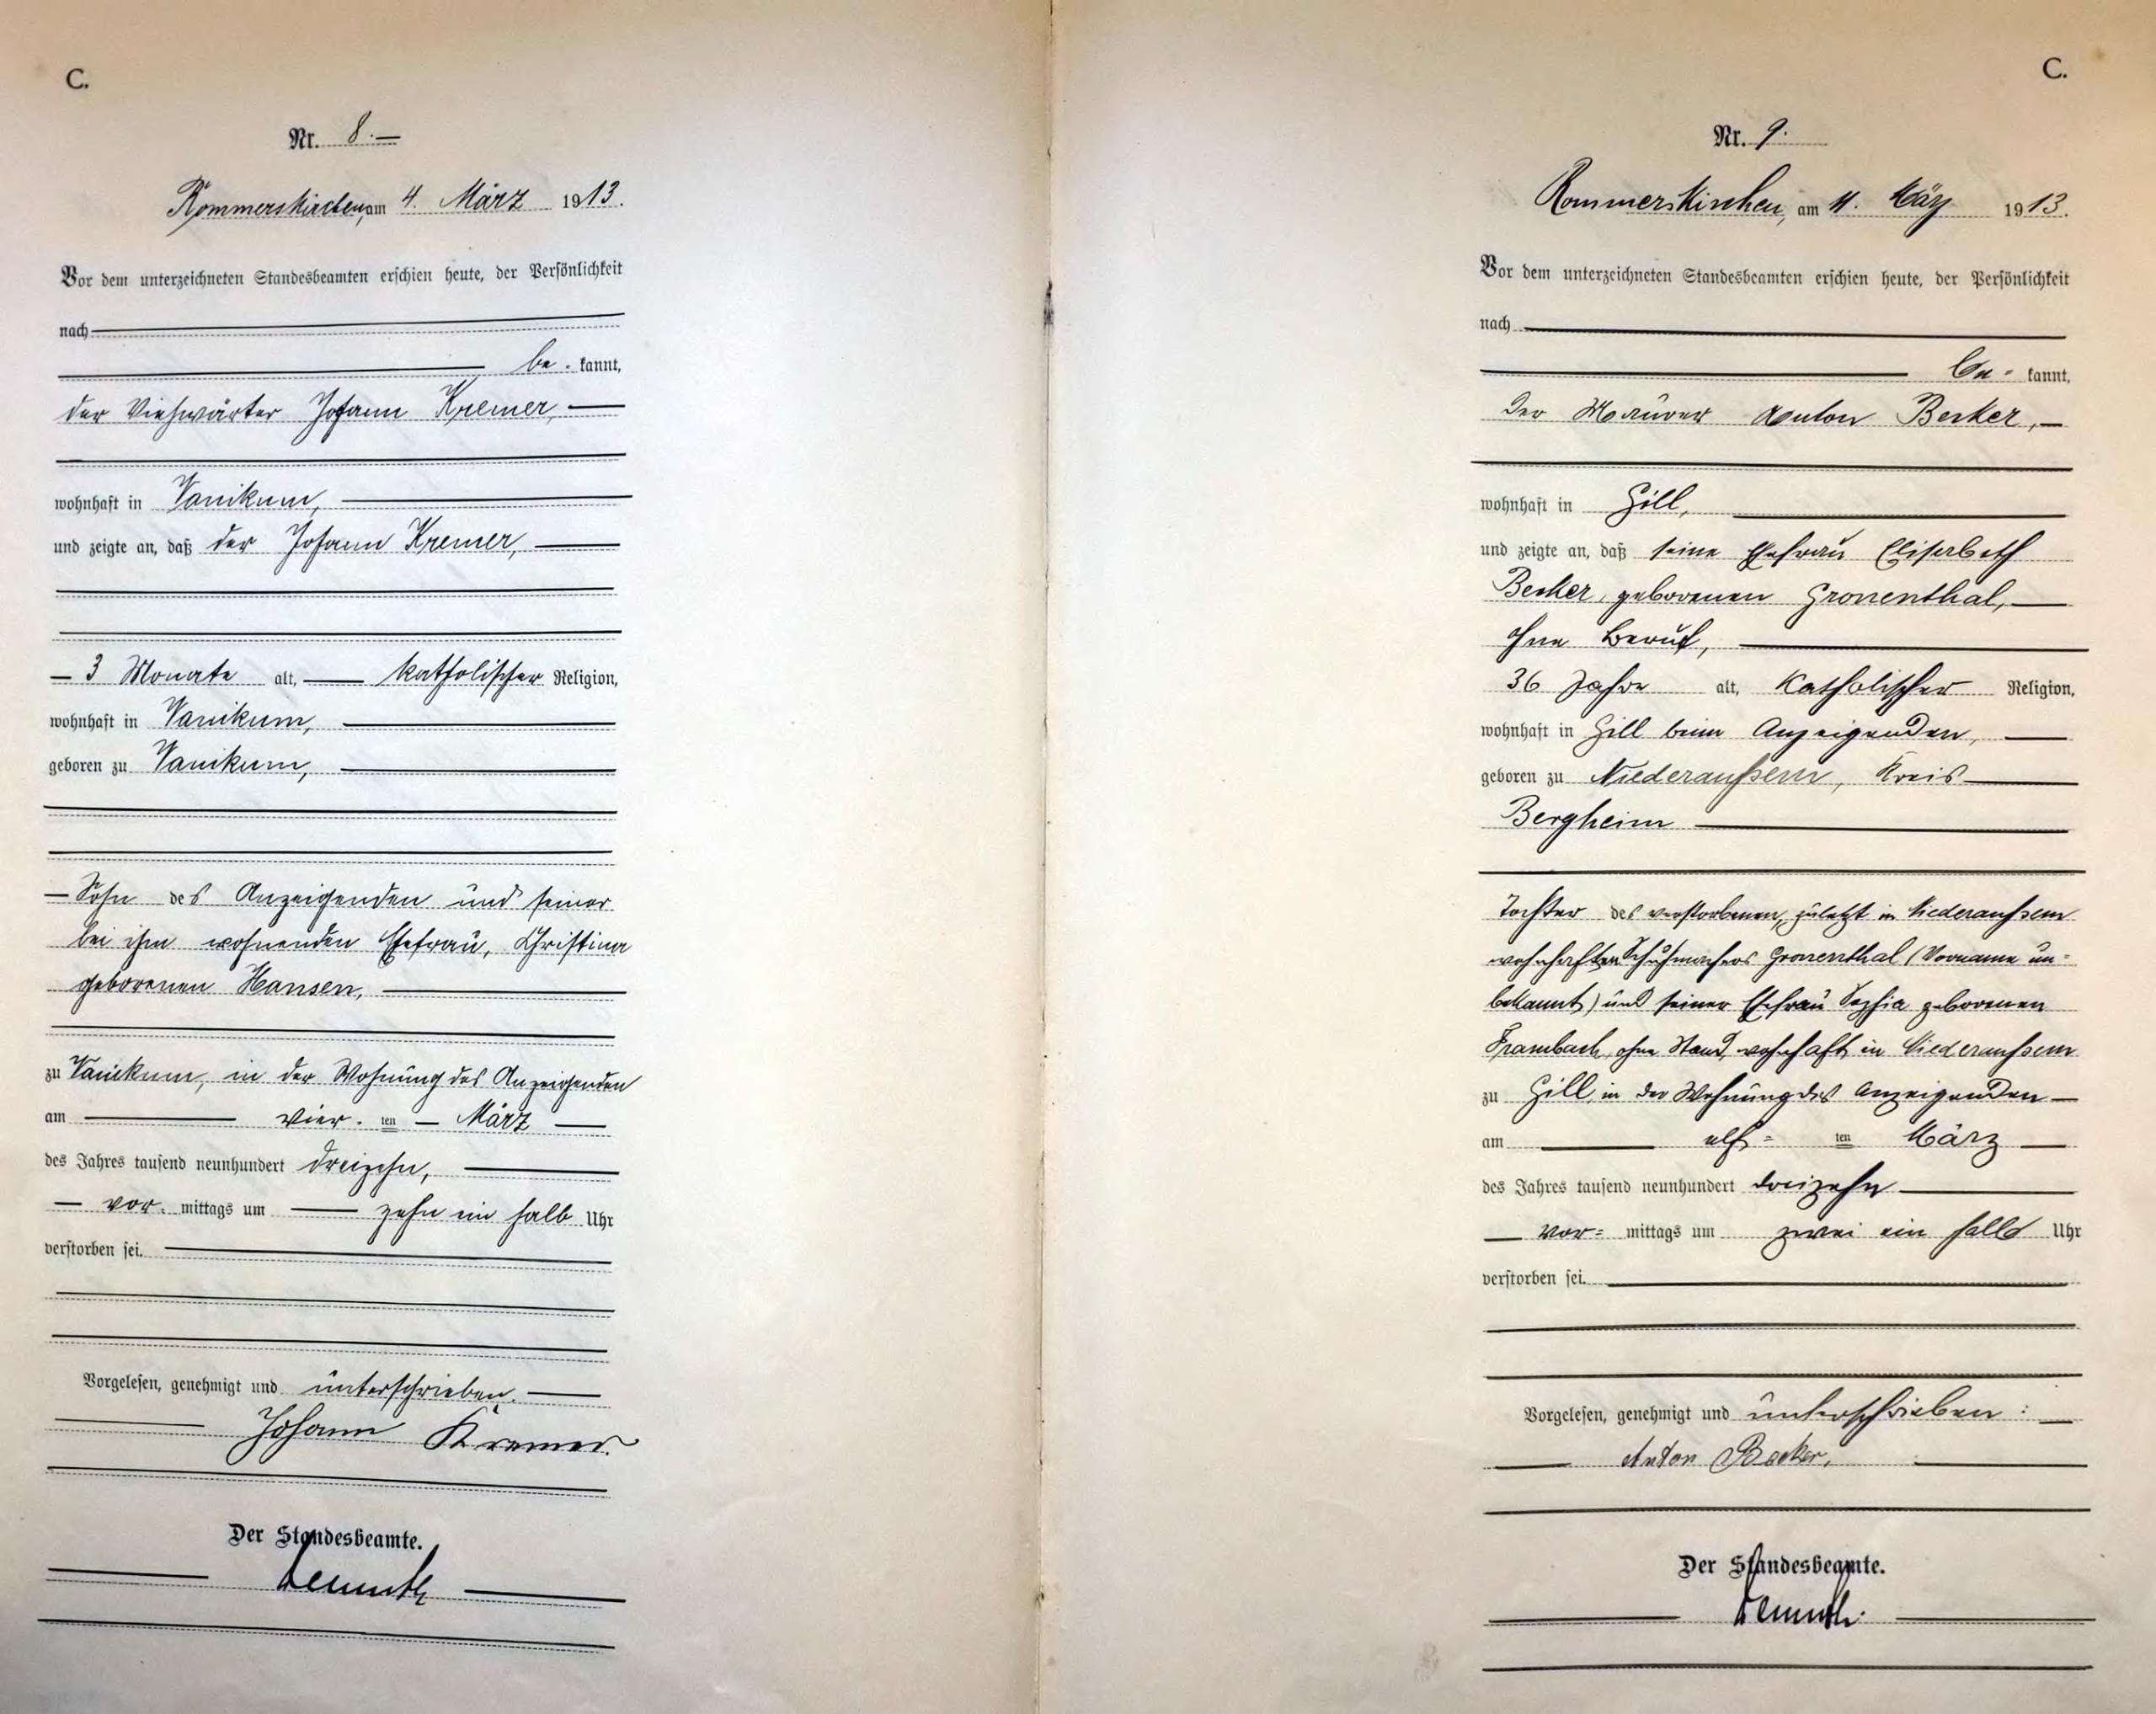 C.
Nr. 8.
Rommerskirchen, am 4. März 1913.
Vor dem unterzeichneten Standesbeamten erschien heute, der Persönlichkeit
nach
be. kannt,
der Viehwärter Johann Kremer,
wohnhaft in Vanikum,
und zeigte an, daß der Johann Kremer,
3 Monate alt, katholischer Religion,
wohnhaft in Vanikum,
geboren zu Vanikum,
Sohn des Anzeigenden und seiner
bei ihm wohnenden Ehefrau, Christina
geborenen Hansen,
zu Vanikum, in der Wohnung des Anzeigenden
am vier. ten März
des Jahres tausend neunhundert dreizehn,
vor. mittags um zehn ein halb Uhr
verstorben sei.
Vorgelesen, genehmigt und unterschrieben.
Johann Kremer.
Der Standesbeamte.
C.
Nr. 9.
Rommerskirchen, am 11. März 1913.
Vor dem unterzeichneten Standesbeamten erschien heute, der Persönlichkeit
nach
be= kannt,
der Maurer Anton Becker,
wohnhaft in Gill,
und zeigte an, daß seine Ehefrau Elisabeth
Becker, geborenen Gronenthal,
ohne Beruf,
36 Jahre alt, katholischer Religion,
wohnhaft in Gill beim Anzeigenden,
geboren zu Niederaußem, Kreis
Bergheim
Tochter des verstorbenen, zuletzt in Niederaußem
wohnhaften Schuhmachers Gronenthal (Vorname un=
bekannt) und seiner Ehefrau Sophia geborenen
Frambach, ohne Stand, wohnhaft in Niederaußem
zu Gill, in der Wohnung des Anzeigenden
am elf= ten März
des Jahres tausend neunhundert dreizehn
vor= mittags um zwei ein halb Uhr
verstorben sei.
Vorgelesen, genehmigt und unterschrieben:
Anton Becker,
Der Standesbeamte.